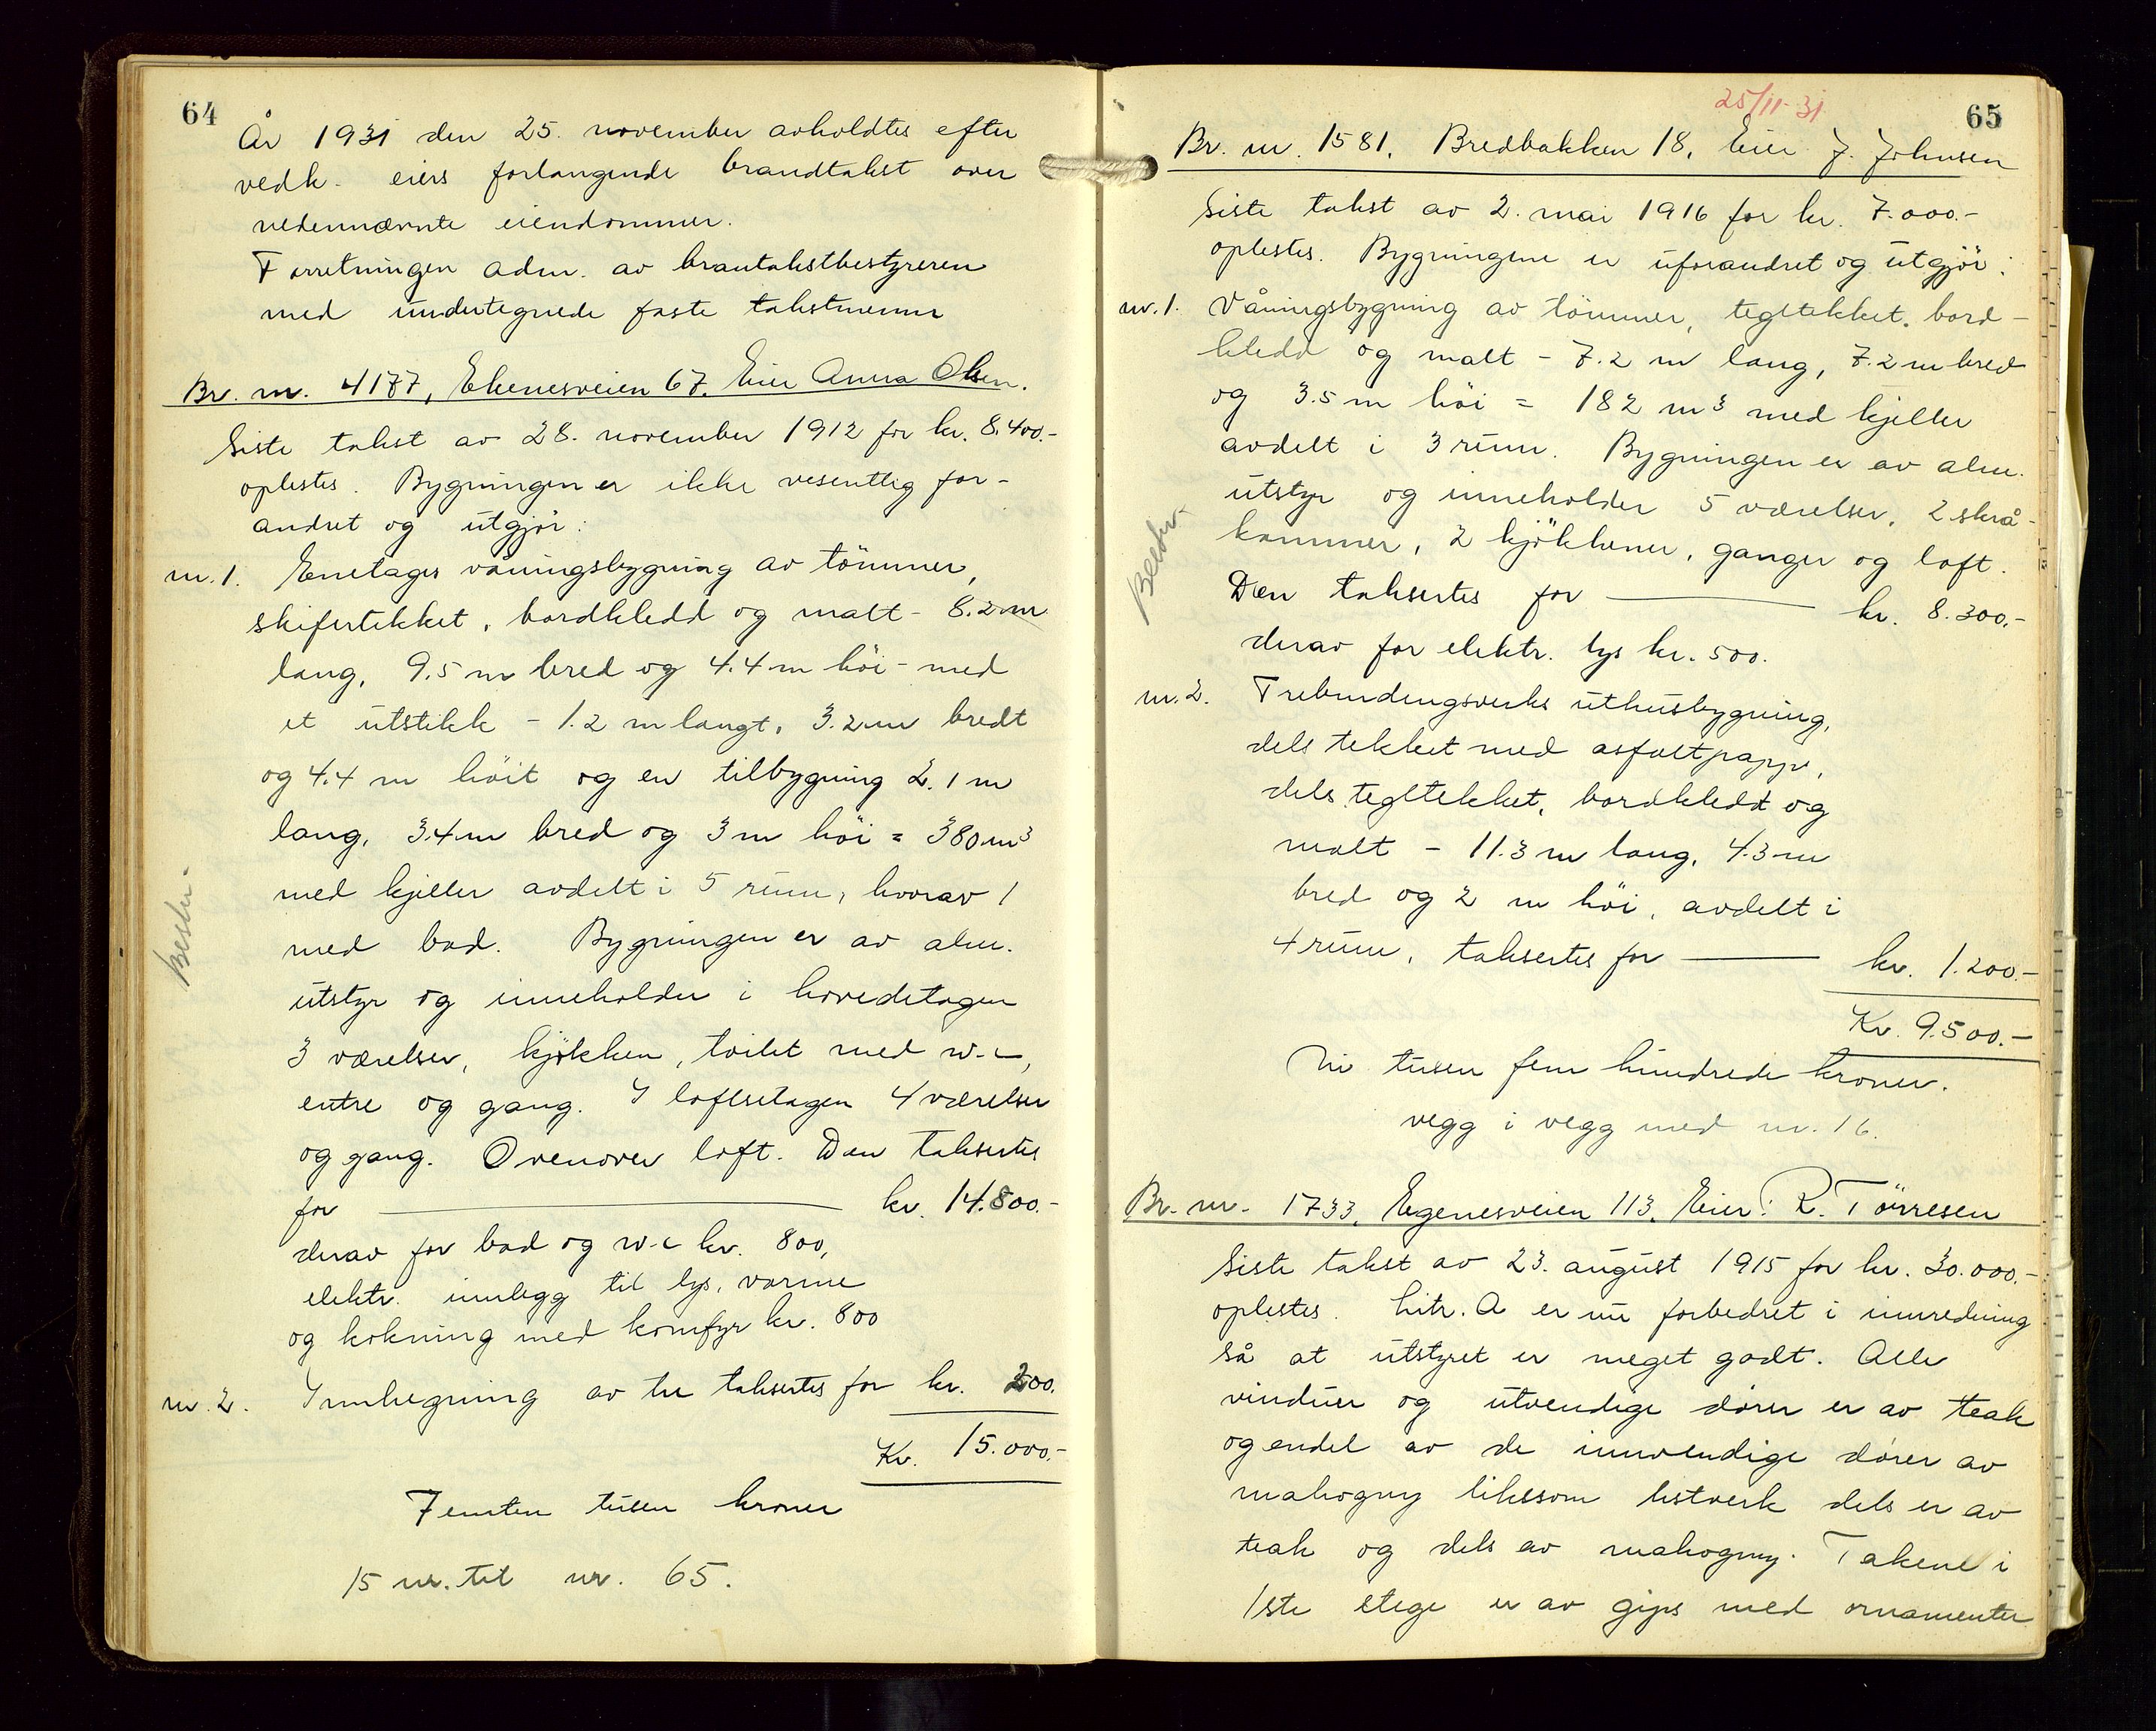 64
År 1931 den 25. november avholdtes efter
vedk. eiers forlangende brandtakst over
nedennævnte eiendommer.
Forretningen adm. av brantakstbestyreren
med undertegnede faste takstmenn
Br. nr. 4177, Ekenesveien 67. Eier Anna Olsen.
Siste takst av 28. november 1912 for kr. 8.400.-
oplestes. Bygningen er ikke vesentlig for-
andret og utgjør:
nr. 1. Enetages våningsbygning av tömmer,
skifertekket, bordkledd og malt - 8.2 m
lang, 9.5 m bred og 4.4 m höi - med
et utstikk - 1.2 m langt, 3.2 m bredt
og 4.4 m höit og en tilbygning 2.1 m
lang, 3.4 m bred og 3 m höi = 380 m3
med kjeller avdelt i 5 rum, hvorav 1
med bad. Bygningen er av alm.
utstyr og inneholder i hovedetagen
3 værelser, kjökken, toilet med w.c,
entre og gang. I loftsetagen 4 værelser
og gang. Ovenover loft. Den taksertes
for kr. 14.800.-
derav for bad og w.c kr. 800,
elektr. innlegg til lys, varme
og kokning med komfyr kr. 800
nr. 2. Innhegning av tre taksertes for kr. 200.
Kr. 15.000.-
Femten tusen kroner
15 nr. til nr. 65.
25/11-31
65
Br. nr. 1581. Bredbakken 18. Eier J. Johnsen
Siste takst av 2. mai 1916 for kr. 7.000.-
oplestes. Bygningene er uforandret og utgjör:
nr. 1. Våningsbygning av tömmer, tegltekket, bord-
kledd og malt - 7.2 m lang, 7.2 m bred
og 3.5 m höi = 182 m3 med kjeller
avdelt i 3 rum. Bygningen er av alm.
utstyr og inneholder 5 værelser, 2 skrå-
kammer, 2 kjökkener, ganger og loft.
Den taksertes for kr. 8.300.-
derav for elektr. lys kr. 500.
nr. 2. Trebindingsverks uthusbygning,
dels tekket med asfaltpapp,
dels tegltekket, bordkledd og
malt - 11.3 m lang, 4.3 m
bred og 2 m höi, avdelt i
4 rum, taksertes for kr. 1.200.-
Kr. 9.500.-
Ni tusen fem hundrede kroner.
vegg i vegg med nr. 16.
Br. nr. 1733. Egenesveien 113. Eier: R. Törresen
Siste takst av 23. august 1915 for kr. 30.000.-
oplestes. Litr. A er nu forbedret i innredning
så at utstyret er meget godt. Alle
vinduer og utvendige dører er av teak
og endel av de innvendige dører av
mahogny likesom listverk dels er av
teak og dels av mahogny. Takene i
1ste etage er av gips med ornamenter